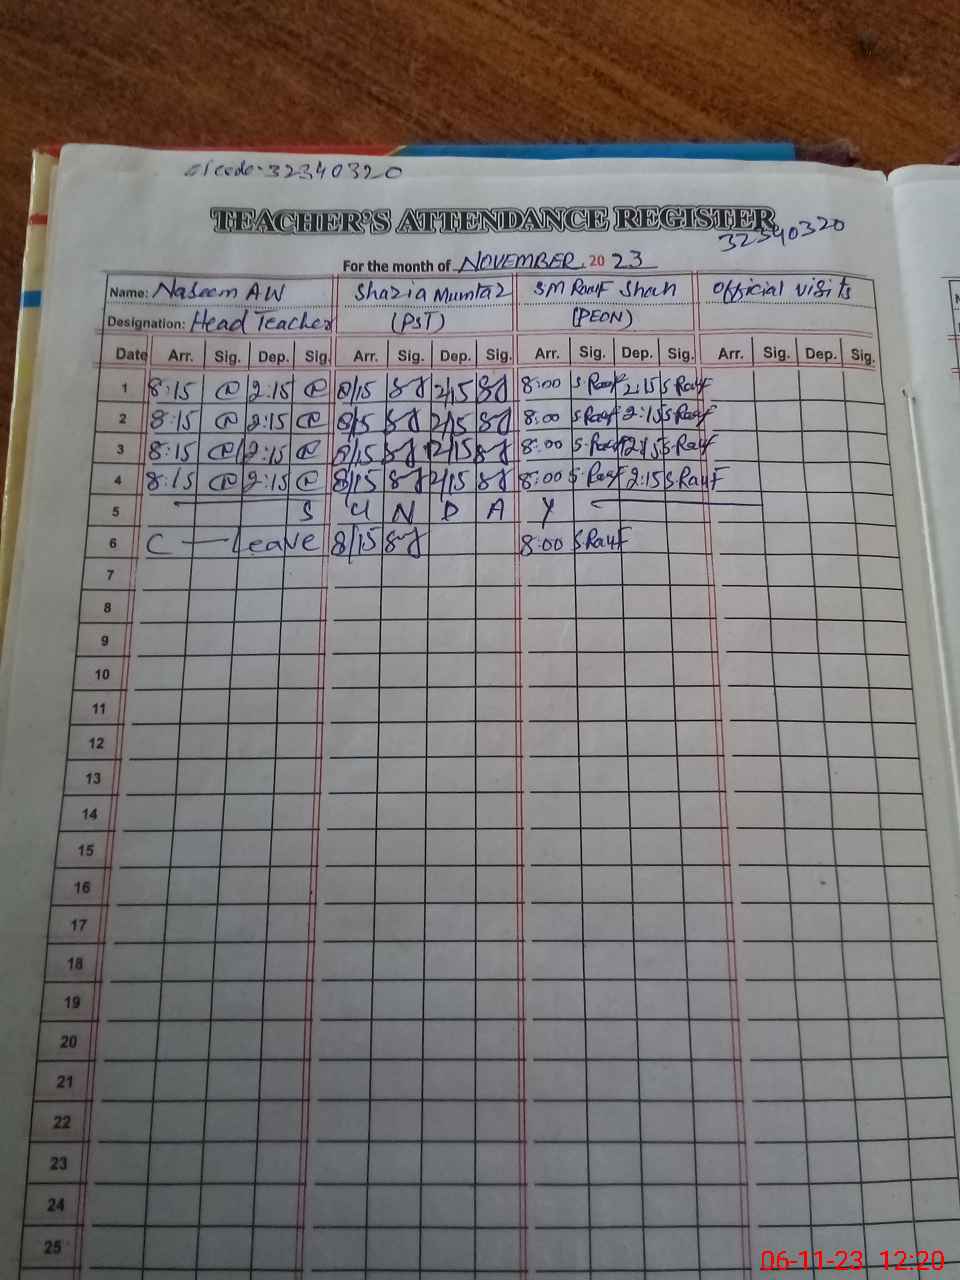 code-32340320
TEACHER'S ATTENDANCE REGISTER
32340320
For the month of NOVEMBER 2023
Name: Naseem AW Shazia Mumtaz SM Rauf Shah official visits
Designation: Head Teacher (PST) (PEON)
Date Arr. Sig. Dep. Sig. Arr. Sig. Dep. Sig. Arr. Sig. Dep. Sig. Arr. Sig. Dep. Sig.
1 8:15 2:15 8/15 2/15 8:00 S.Rauf 2:15 S.Rauf
2 8:15 2:15 8/15 2/15 8:00 S.Rauf 2:15 S.Rauf
3 8:15 2:15 8/15 2/15 8:00 S.Rauf 2:15 S.Rauf
4 8:15 2:15 8/15 2/15 8:00 S.Rauf 2:15 S.Rauf
5 S U N D A Y
6 C — Leave 8/15 8:00 S.Rauf
7
8
9
10
11
12
13
14
15
16
17
18
19
20
21
22
23
24
25
06-11-23 12:20